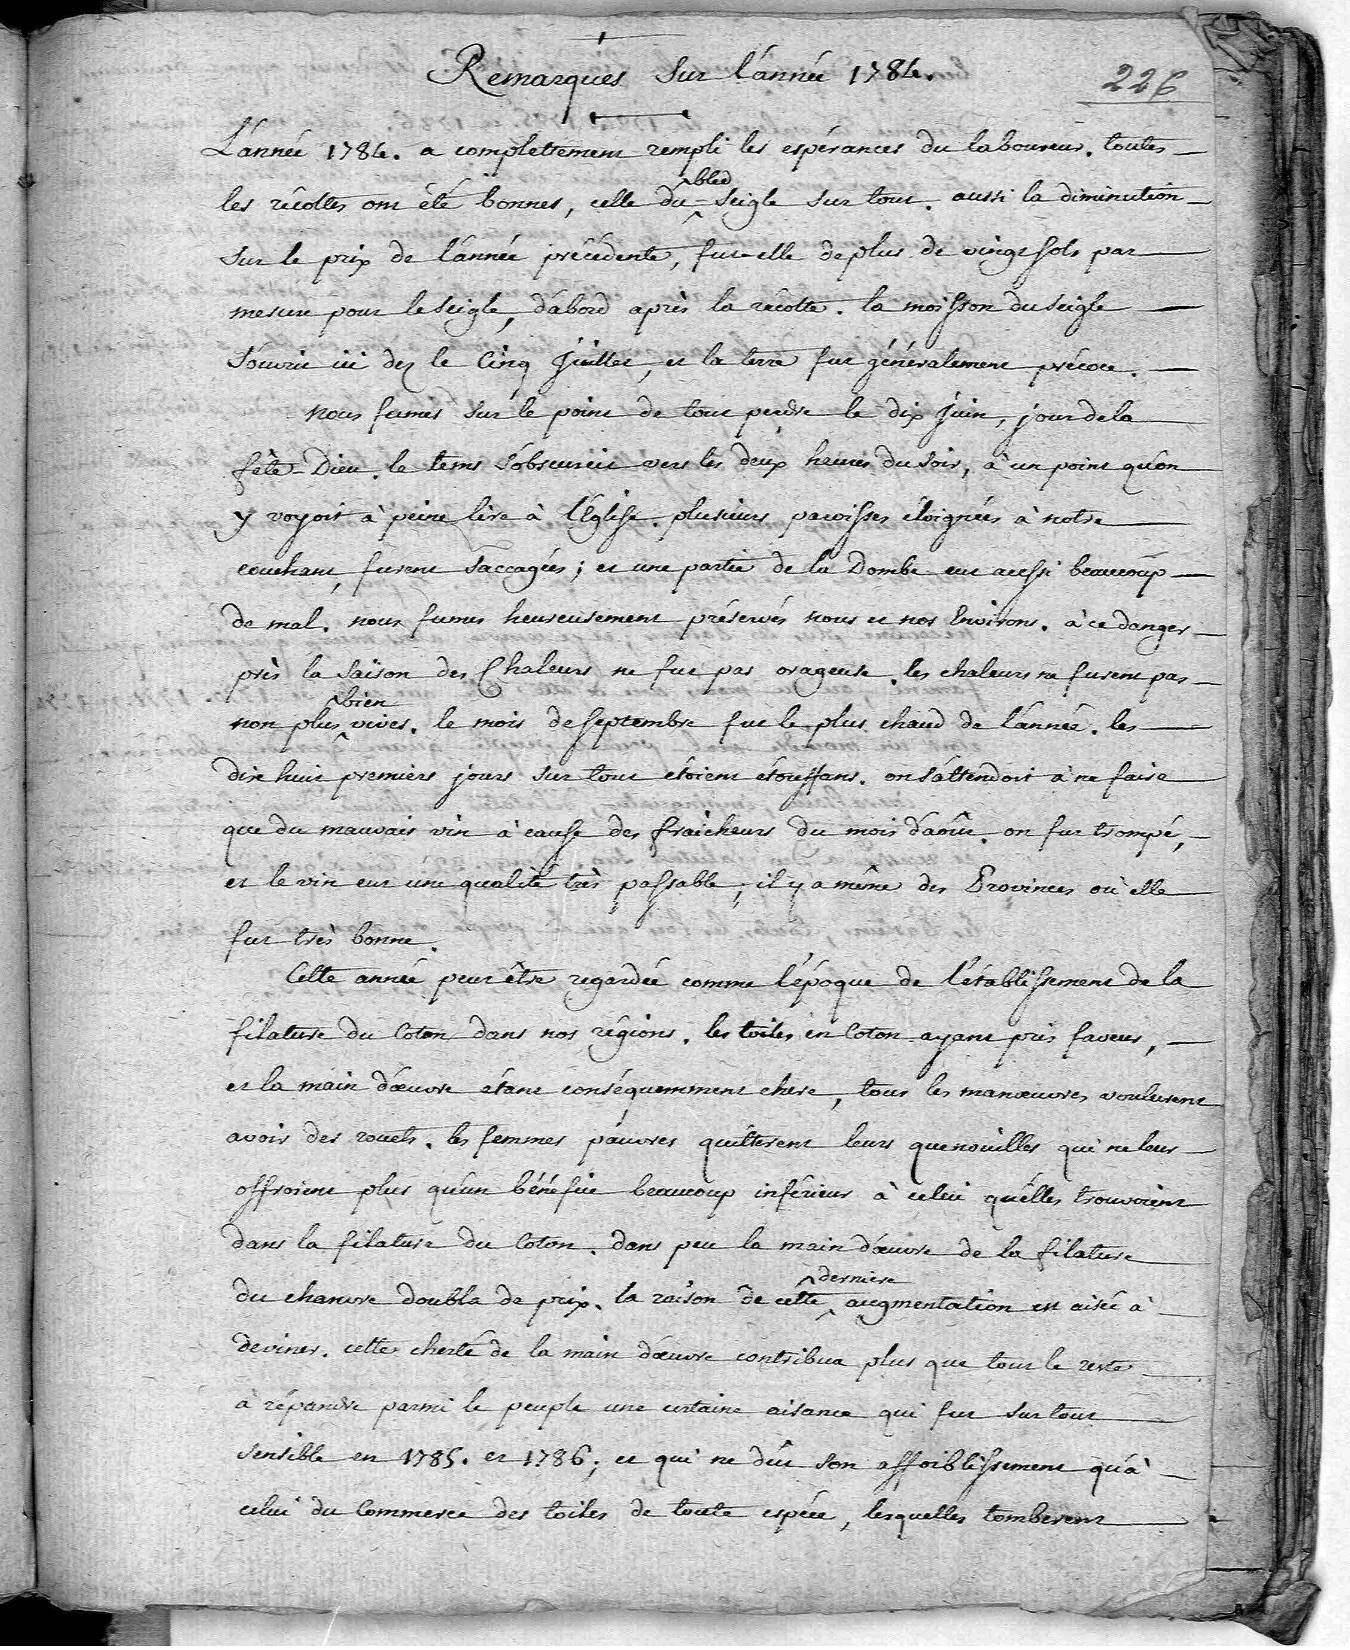 Remarques sur l'année 1784.
226
L'année 1784. a complettement rempli les espérances du laboureur. toutes
les récoltes ont été bonnes, celle du bled-seigle sur tout. aussi la diminution
sur le prix de l'année précédente, fut-elle de plus de vingt sols par
mesure pour le seigle, d'abord après la récolte. la moisson du seigle
s'ouvrit ici dez le Cinq Juillet, et la terre fut généralement précoce.
nous fumes sur le point de tout perdre le dix Juin, jour de la
fête-Dieu. le tems s'obscurcit vers les deux heures du soir, à un point qu'on
y voyoit à peine lire à l'Eglise. plusieurs paroisses éloignées à notre
couchant, furent saccagées; et une partie de la Dombe eut aussi beaucoup
de mal. nous fumes heureusement préservés nous et nos Environs. à ce danger
près la saison des Chaleurs ne fut pas orageuse. les chaleurs ne furent pas
non plus bien vives. le mois de septembre fut le plus chaud de l'année. les
dix huit premiers jours sur tout étoient étouffans. on s'attendoit à ne faire
que du mauvais vin à cause des fraicheurs du mois d'août. on fut trompé,
et le vin eut une qualité très passable; il y a même des Provinces où elle
fut très bonne.
Cette année peut être regardée comme l'époque de l'établissement de la
filature du Coton dans nos régions. les toiles en Coton ayant pris faveur,
et la main d'œuvre étant conséquemment chere, tous les manœuvres voulurent
avoir des rouets. les femmes pauvres quitterent leurs quenouilles qui ne leur
offroient plus qu'un bénéfice beaucoup inférieur à celui qu'elles trouvoient
dans la filature du Coton. dans peu la main d'œuvre de la filature
du chanvre doubla de prix. la raison de cette derniere augmentation est aisée à
deviner. cette cherté de la main d'œuvre contribua plus que tout le reste
à répandre parmi le peuple une certaine aisance qui fut sur tout
sensible en 1785. et 1786; et qui ne dût son affoiblissement qu'à
celui du Commerce des toiles de toute espéce, lesquelles tomberent